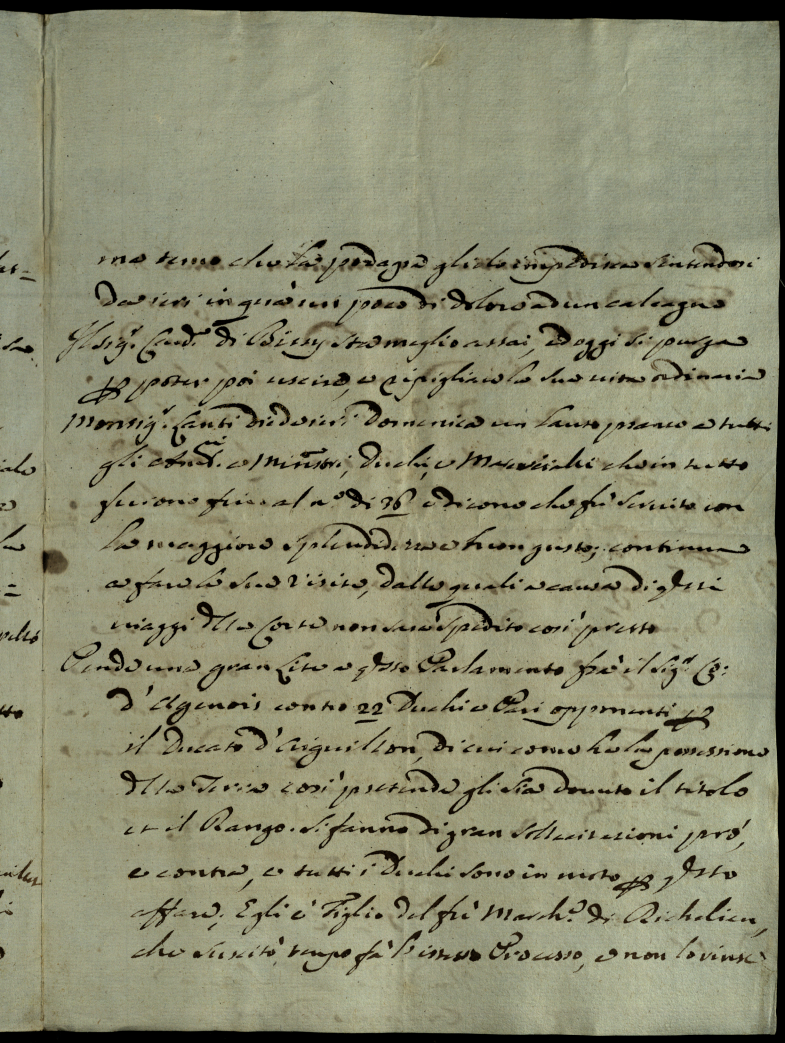 ma temo che la podagra glielo impedisca sentendosi
da ieri in quà un poco di dolore ad un calcagno
Il sigr. Card. di Bissy sta meglio assai, ed oggi si purga
p poter poi uscire, e ripigliare la sua vita ordinaria
Monsigr. diede ieri Domenica un lauto pranzo a tutti
gli Ambri. e Ministri, Duchi, e Marescialli che in tutto
furono fin al no. di 36 e dicono che fù servito con
la maggiore splendidezza e buon gusto; continua
a fare le sue visite, dalle quali a causa di qsti
viaggi della Corte non sarà spedito così presto
Pende una gran Lite a qsto Parlamento frà il Sigr. Co:
d'Agenois contro 22 Duchi e Pari opponenti p
il Ducato d'Aiguillon, di cui come hà la possessione
della Terra così pretende gli sia dovuto il titolo
et il Rango. Si fanno di gran sollecitazioni prò,
e contra, e tutti i Duchi sono in moto p qsto
affare; Egli è Figlio del fù March. di Richelieu,
che suscitò, tempo fà l'istesso Processo, e non lo vinse